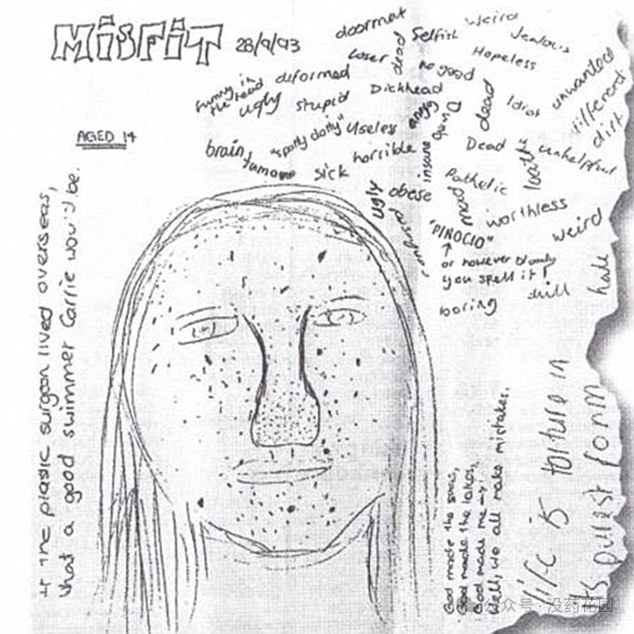 MISFIT 28/9/93
AGED 14
doormat
Selfish
weird
Jealous
Loser
dead
Hopeless
no good
unwanted
different
dirt
funny in the head
deformed
ugly
stupid
Dickhead
angry
Dumb
dead
Idiot
brain tumour
"spotty dotty"
Useless
horrible
insane
Dead
loathe
unhelpful
sick
ugly
obese
Pathetic
mad
worthless
weird
"PINOCIO"
or however bloody
you spell it!
boring
dull
hate
If the plastic surgeon lived overseas,
what a good swimmer Carrie would be.
God made the seas,
God made the lakes,
God made me —
Well, we all make mistakes.
life is torture in
its purest form
公众号 · 没药花园